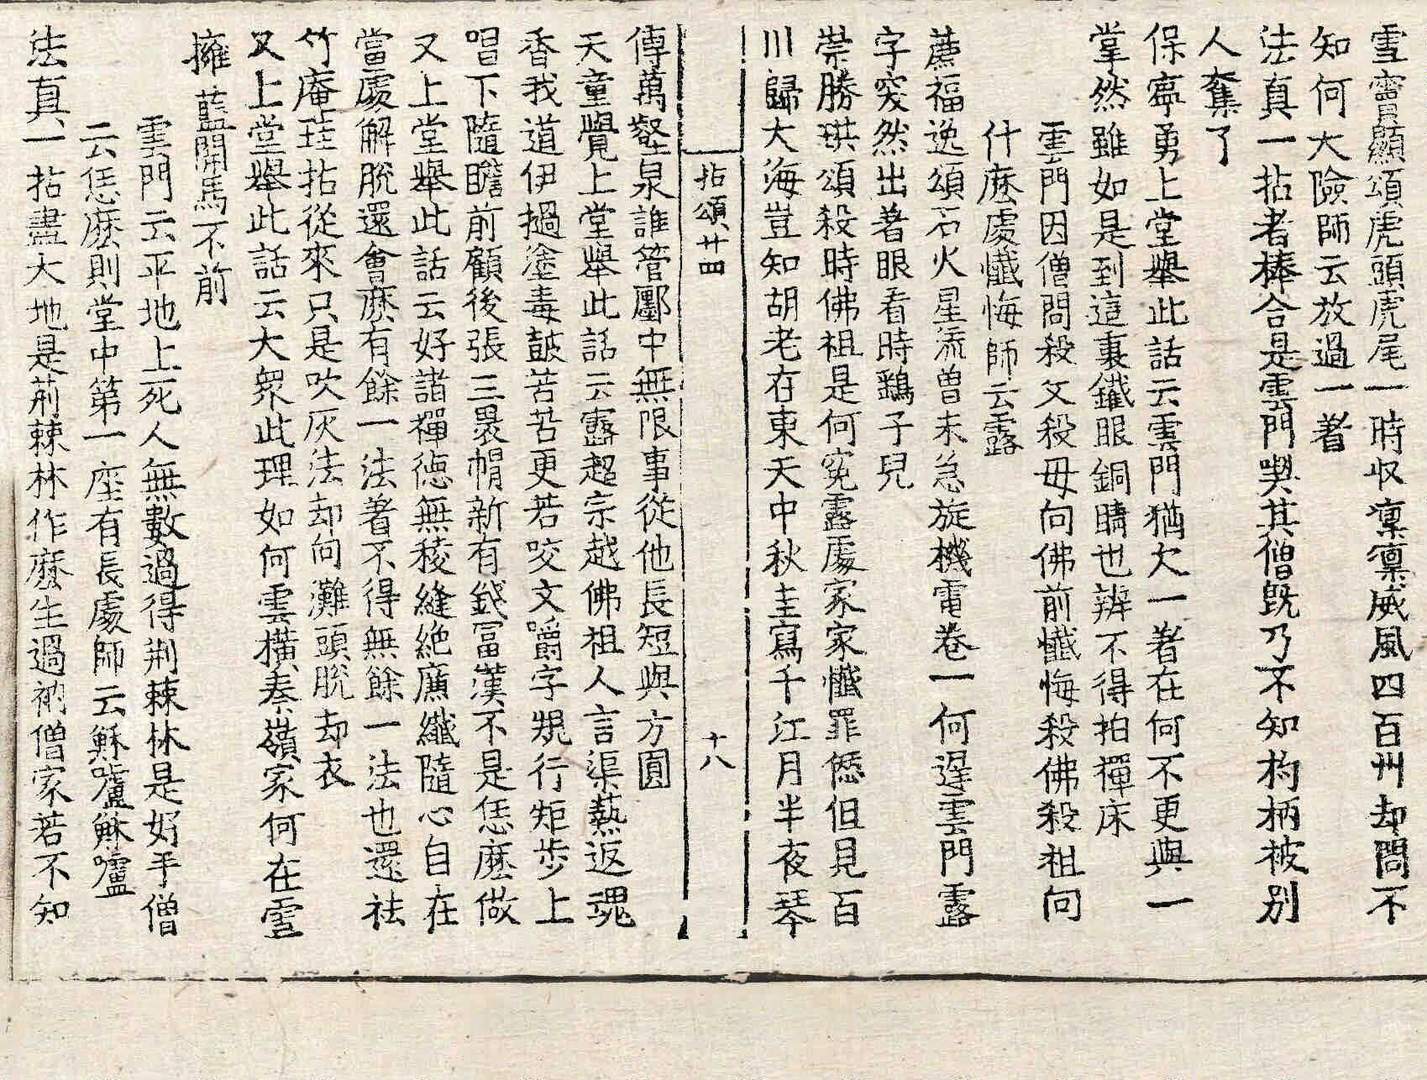 雪竇顯頌虎頭虎尾一時収凜凜威風四百州却問不
知何大險師云放過一著
法真一拈者棒合是雲門喫其僧旣乃不知杓柄被別
人奪了
保寧勇上堂舉此話云雲門猶欠一著在何不更與一
掌然雖如是到這裏鐵眼銅睛也辨不得拍禪床
雲門因僧問殺父殺母向佛前懺悔殺佛殺祖向
什麽處懺悔師云露
薦福逸頌石火星流曽未急旋機電卷一何遅雲門露
字突然出著眼看時鷂子兒
崇勝珙頌殺時佛祖是何寃露處家家懺罪愆但見百
川歸大海豈知胡老在東天中秋圭寫千江月半夜琴
拈頌廿四
十八
傳萬壑泉誰管鄽中無限事從他長短與方圓
天童覺上堂舉此話云露超宗越佛祖人言渠爇返魂
香我道伊撾塗毒皷苦苦更若咬文嚼字規行矩步上
唱下隨瞻前顧後張三裹㡌新有錢冨漢不是恁麽做
又上堂舉此話云好諸禪徳無稜縫絶廉纖隨心自在
當處解脫還會麽有餘一法著不得無餘一法也還祛
竹庵珪拈從來只是吹灰法却向灘頭脫却衣
又上堂舉此話云大衆此理如何雲横秦嶺家何在雪
擁藍関馬不前
雲門云平地上死人無數過得荆棘林是好手僧
云恁麽則堂中第一座有長處師云穌嚧穌嚧
法真一拈盡大地是荊棘林作麽生過衲僧家若不知